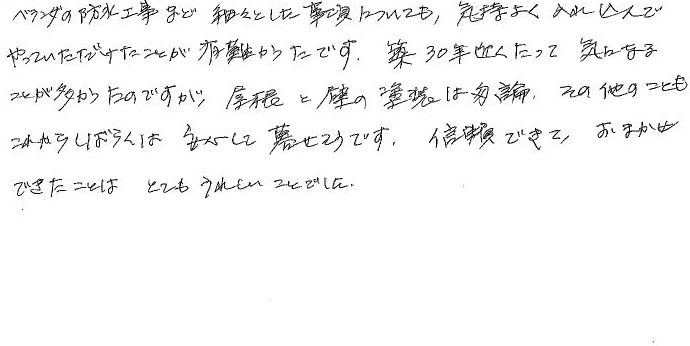 ベランダの防水工事など 細々とした事項についても、気持よく 入れ込んで
やっていただけたことが 有難かったです。 築 30年近くたって 気になる
ことが多かったのですが、 屋根 と 壁の 塗装は勿論、 その他のことも
これからしばらくは 安心して 暮せそうです。 信頼できて、 おまかせ
できたことは とてもうれしいことでした。